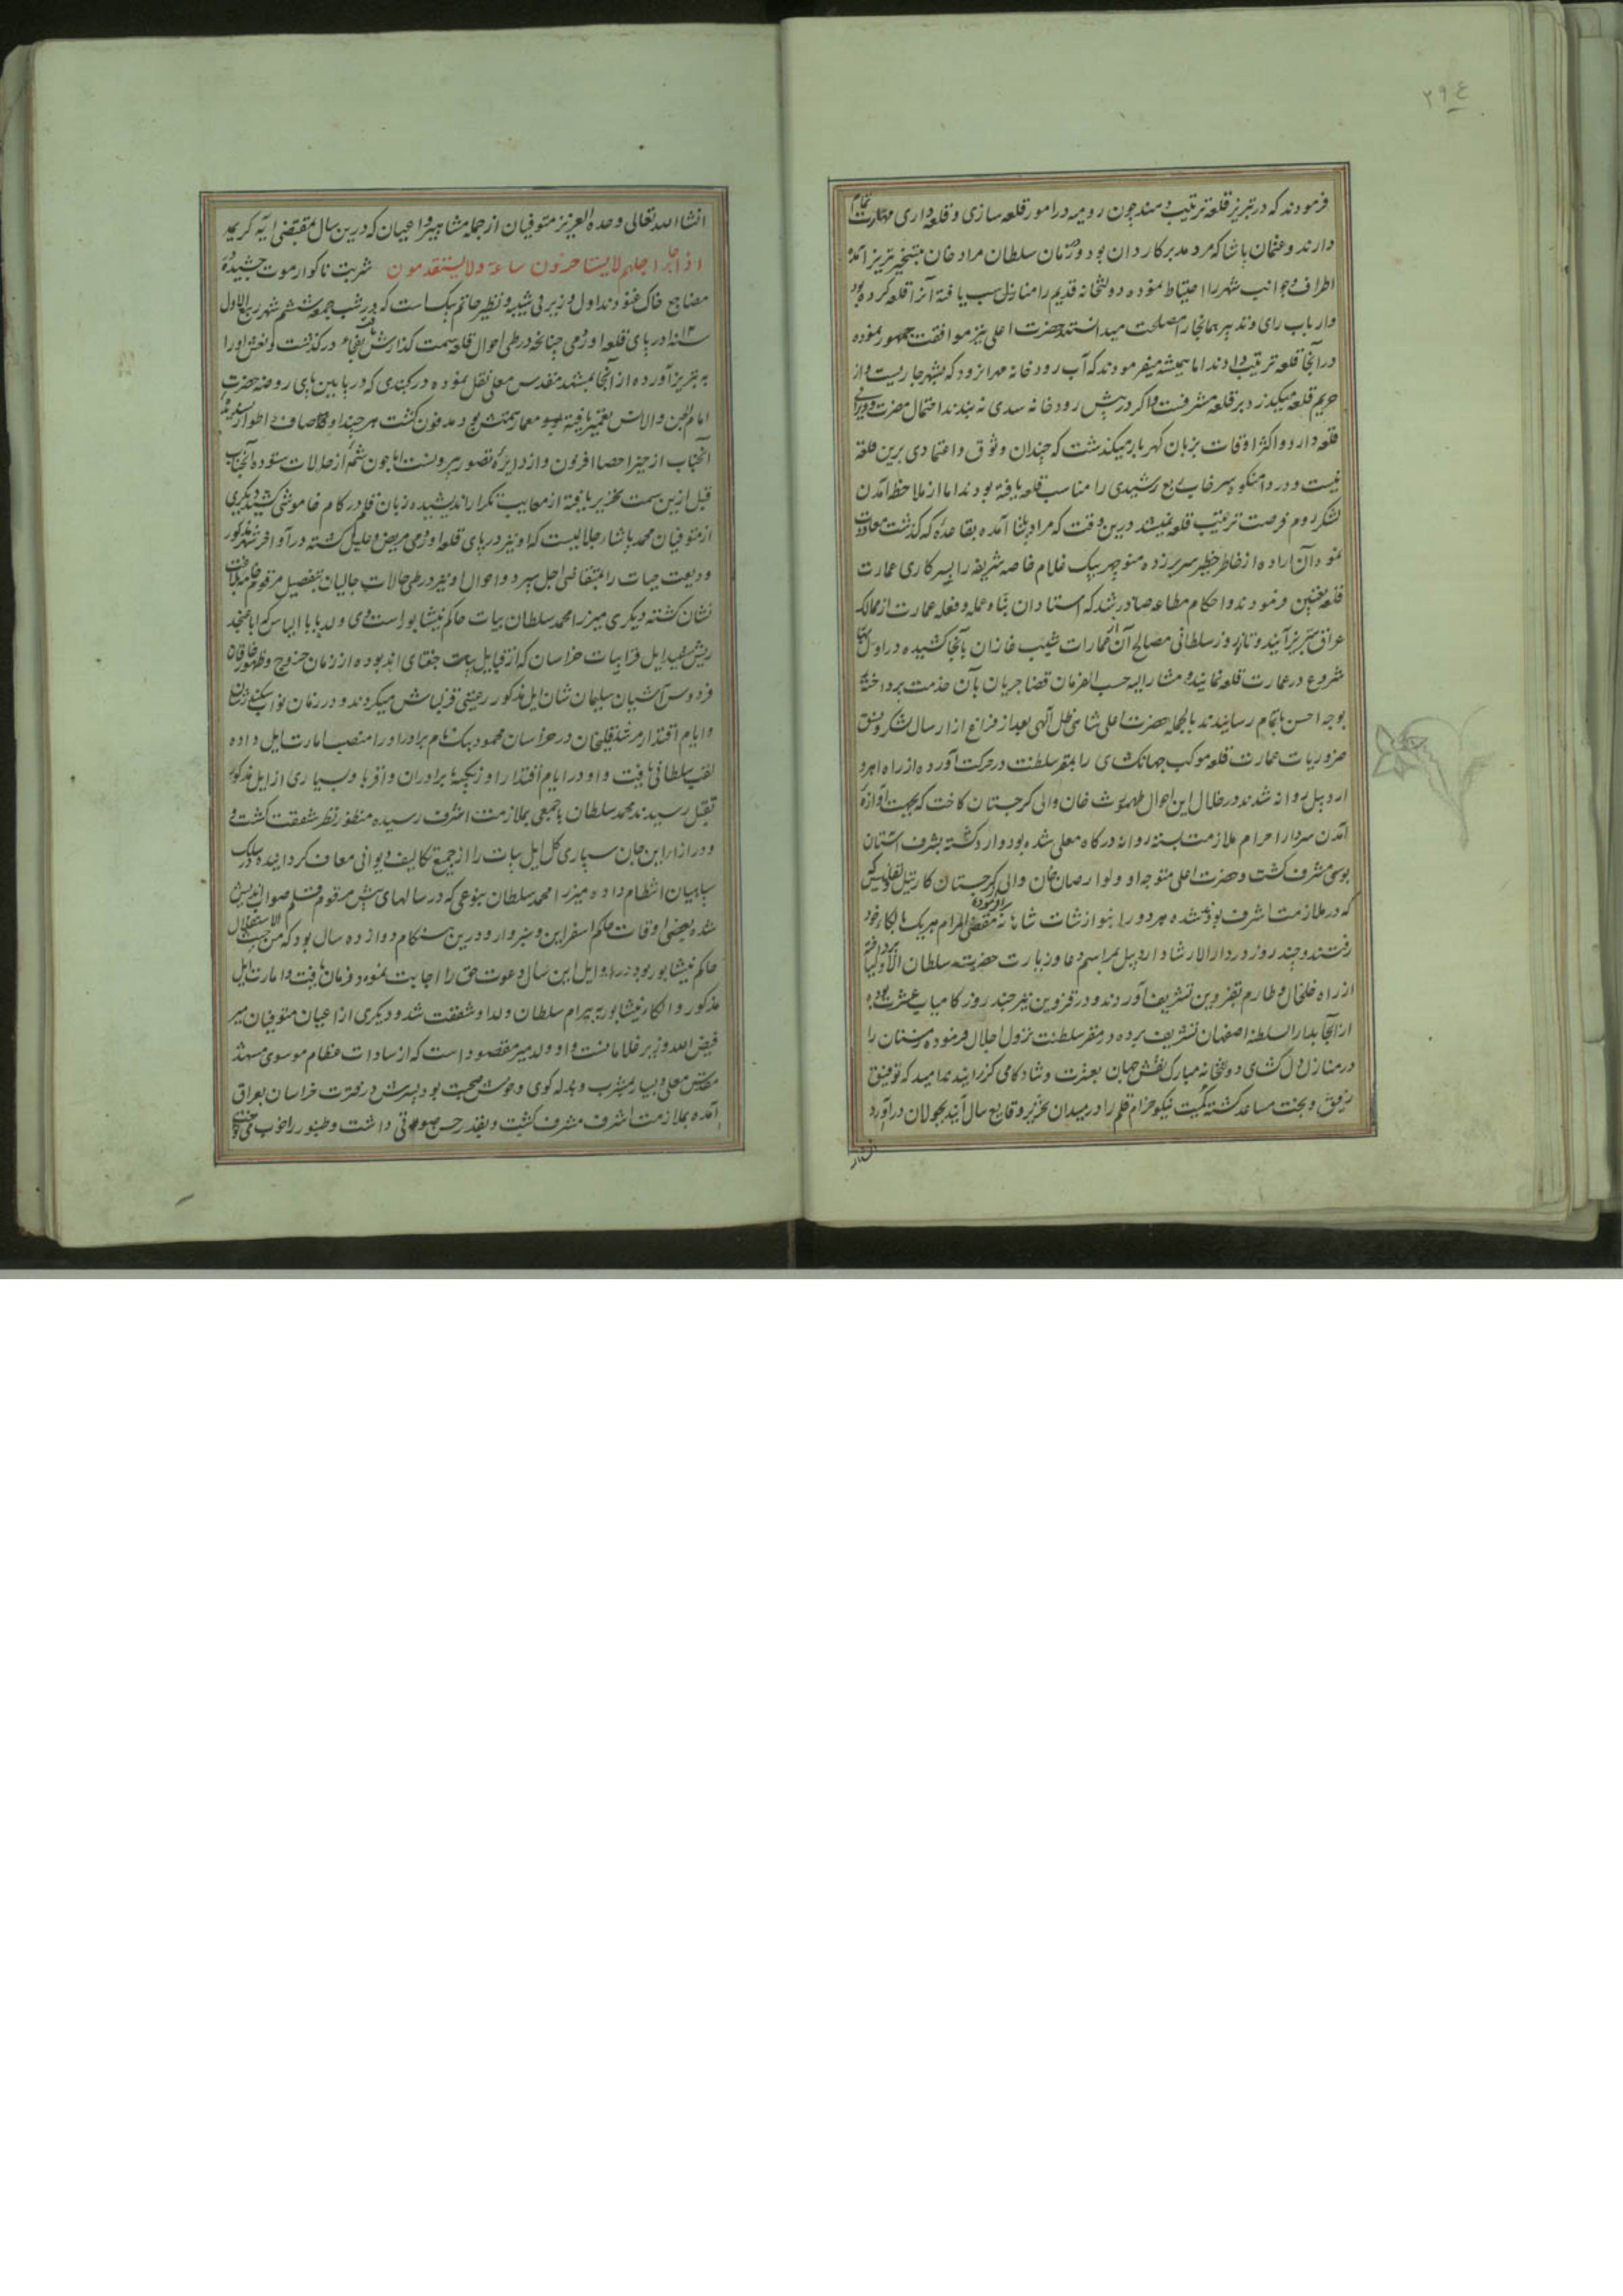 ۲۹۴
فرمودند که در تبریز قلعه ترتیب دهند چون رومیه در امور قلعه سازی و قلعه داری مهارت تمام
دارند و عثمان پاشا که مرد مدبر کاردان بود و در زمان سلطان مراد خان بتسخیر تبریز آمد
اطراف و جوانب شهر را احتیاط نموده دولتخانه قدیم را مناسب یافته آنرا قلعه کرده بود
و ارباب رای و تدبیر همانجا را مصلحت میدانستند حضرت اعلی نیز موافقت جمهور نموده
در آنجا قلعه ترتیب دادند اما همیشه میفرمودند که آب رودخانه مهرانرود که بشهر جاریست و از
حریم قلعه میگذرد بر قلعه مشرفست و اگر در پیش رودخانه سدی نه بندند احتمال مضرت و ویرانی
قلعه دارد و اکثر اوقات بزبان گهربار میگذشت که چندان وثوق و اعتمادی برین قلعه
نیست و در دامنکوه سرخاب ربع رشیدی را مناسب قلعه یافته بودند اما از ملاحظه آمدن
لشکر روم فرصت ترتیب قلعه نمیشد درین وقت که مراد پاشا آمده بقاعده که گذشت معاودت
نمود آن اراده از خاطر خطیر سر بر زده منوچهر بیک غلام خاصه شریفه را بسرکاری عمارت
قلعه تعیین فرمودند و احکام مطاعه صادر شد که استادان بناه عمله و فعله عمارت از ممالک
عراق بتبریز آیند و تا نوروز سلطانی مصالح آن از عمارات شنب غازان بآنجا کشیده در اول بهار
شروع در عمارت قلعه نمایند و مشارالیه حسب الفرمان قضا جریان بآن خدمت پرداخته
بوجه احسن باتمام رسانیدند بالجمله حضرت اعلی شاهی ظل الهی بعد از فراغ از ارسال لشکر و نسق
ضروریات عمارت قلعه موکب جهانگشای را بمقر سلطنت در حرکت آورده از راه اهر و
اردبیل روانه شدند در خلال این احوال طهمورث خان والی گرجستان کاخت که بجهت آوازه
آمدن سردار احرام ملازمت بسته روانه درگاه معلی شده بود وارد گشته بشرف آستان
بوسی مشرف گشت و حضرت اعلی متوجه او و لوارصاب خان والی گرجستان کارتیل تفلیس
که در ملازمت اشرف بود شده هر دو را بنوازشات شاهانه مقضی المرام هر یک بالکاء خود
رفتند و چند روز در دار الارشاد اردبیل بمراسم دعا و زیارت حضرت سلطان الاولیا پرداخته
از راه خلخال و طارم بقزوین تشریف آوردند و در قزوین نیز چند روز کامیاب عشرت بوده
از آنجا بدار السلطنه اصفهان تشریف برده در مقر سلطنت نزول اجلال فرموده زمستان را
در منازل دلگشای دولتخانه مبارک نقش جهان بعشرت و شادکامی گذرانیدند امید که توفیق
رفیق و بخت مساعد گشته کمیت نیکوخرام قلم را در میدان تحریر وقایع سال آینده بجولان درآورد
انشاء
انشا الله تعالی وحده العزیز متوفیان از جمله مشاهیر و اعیان که درین سال بمقتضی آیه کریمه
اذا جاء اجلهم لا یستاخرون ساعة ولا یستقدمون شربت ناگوار موت چشیده
مضاجع خاک غنودند اول وزیر بی شبیه و نظیر حاتم بیک است که در شب جمعه ششم شهر ربیع الاول
سنه در پای قلعه اورمی چنانچه در طی احوال قلعه سمت گذارش یافت بفجاء درگذشت و نعش او را
به تبریز آورده از آنجا بمشهد مقدس معلی نقل نموده در گنبدی که در پایین پای روضه حضرت
امام الجن والانس تعمیر یافته معمار همتش بود مدفون گشت هر چند اوصاف و اطوار پسندیده
آنجناب از حیز احصا افزون و از دایره تصور بیرونست اما چون شمه از حالات ستوده آنجناب
قبل ازین سمت تحریر یافته از معایب تکرار اندیشیده زبان قلم در کام خاموشی کشید دیگری
از متوفیان محمد پاشا جلالیست که او نیز در پای قلعه اورمی مریض و علیل گشته در آواخر شهر مذکور
ودیعت حیات را بمتقاضی اجل سپرد و احوال او نیز در طی حالات جلالیان بتفصیل مرقوم خامه بلاغت
نشان گشته دیگری میرزا محمد سلطان بیات حاکم نیشابور است وی ولد بابا الیاس که ابا عنجد
ریش سفید ایل قرابیات خراسان که از قبایل بیات جغتای اند بوده از زمان خروج و ظهور خاقان
فردوس آشیان سلیمان شان ایل مذکور رعیتی قزلباش میکردند و در زمان نواب سکندر شان
و ایام اقتدار مرشد قلیخان در خراسان محمود بیک نام برادر او را منصب امارت ایل داده
لقب سلطانی یافت و او در ایام اقتدار اوزبکیه با برادران و اقربا و بسیاری از ایل مذکور
بقتل رسیدند محمد سلطان با جمعی بملازمت اشرف رسیده منظور نظر شفقت گشت و
و در ازاء این جان سپاری کل ایل بیات را از جمیع تکالیف دیوانی معاف گردانیده در سلک
سپاهیان انتظام داده میرزا محمد سلطان بنوعی که در سالهای پیش مرقوم قلم صواب اندیش
شده بعضی اوقات حاکم اسفراین و سبزوار و درین هنگام دوازده سال بود که من حیث الاستقلال
حاکم نیشابور بود در اوایل این سال دعوت حق را اجابت نموده فرمان یافت و امارت ایل
مذکور و الکاء نیشابور به بیرام سلطان ولد او شفقت شد و دیگری از اعیان متوفیان میر
فیض الله وزیر غلامانست و او ولد میر مقصود است که از سادات عظام موسوی مشهد
مقدس معلی و بسیار مشرب و بذله گوی و خوش صحبت بود پسرش در فترت خراسان بعراق
آمده بملازمت اشرف مشرف گشت و بقدر حسن صوتی داشت و طنبور را خوب می